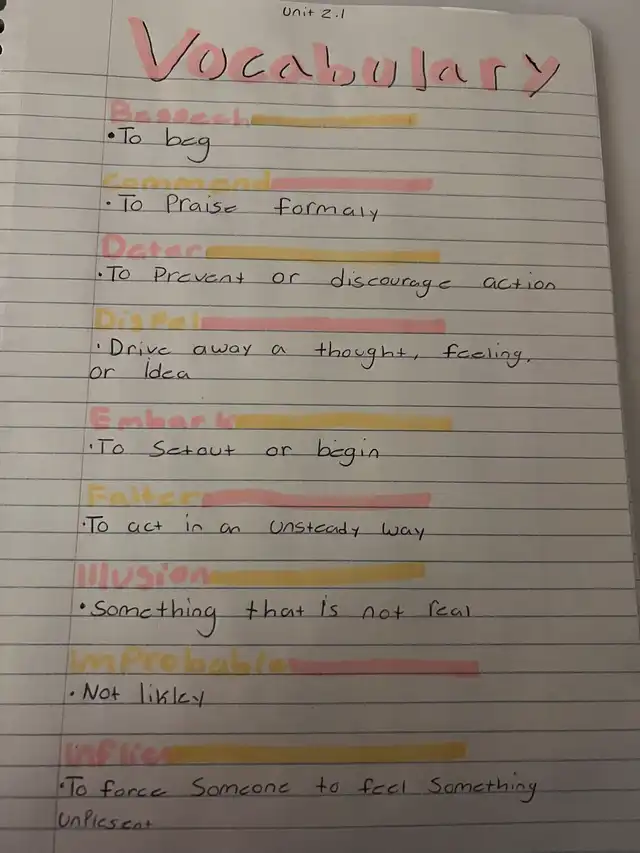 Unit 2.1
Vocabulary
Beseech
• To beg
Command
• To Praise formaly
Deter
• To Prevent or discourage action
Dispel
• Drive away a thought, feeling,
or Idea
Embark
• To Setout or begin
Falter
• To act in an unsteady way
Illusion
• Something that is not real
improbable
• Not likley
inflict
• To force Someone to feel Something
unplesent